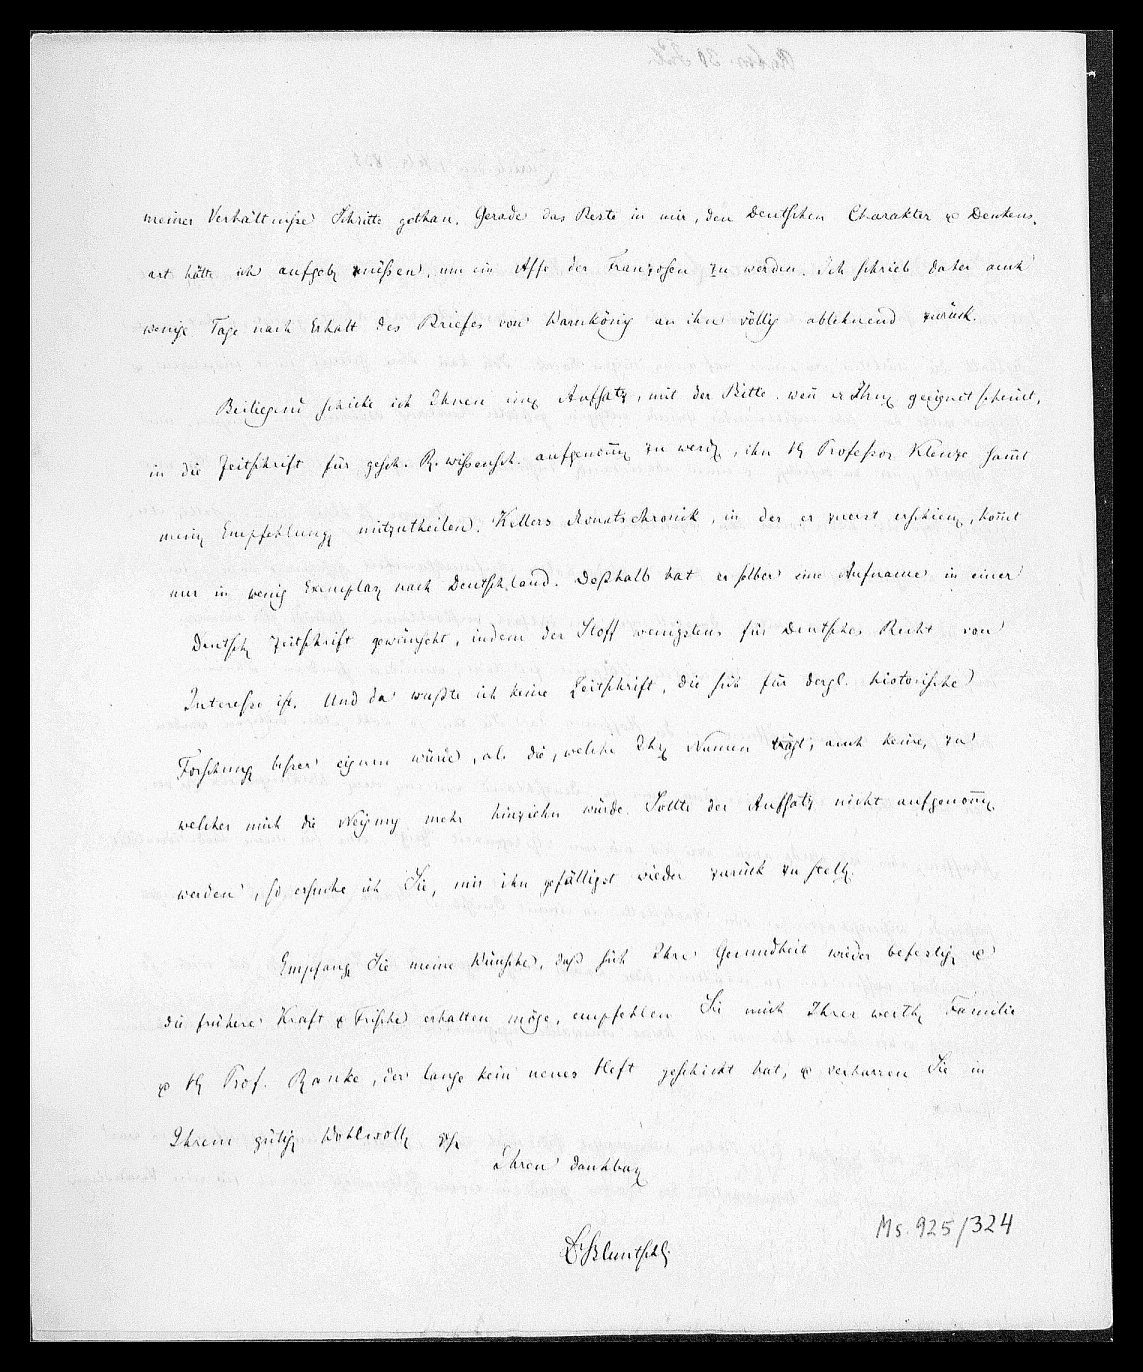 meiner Verhältniße Schritte gethan. Gerade das Beste in mir, den Deutschen Charakter & Denkens-
art hätte ich aufgeb müßen, um ein Affe der Franzosen zu werden. Ich schrieb daher auch
wenige Tage nach Erhalt des Briefes von Warnkönig an ihn völlig ablehnend zurück.
Beiliegend schicke ich Ihnen ein Aufsatz, mit der Bitte, weñ er Ihn geeignet scheint,
in die Zeitschrift für gesch. R. wißensch. aufgenom̃ zu werd, ihn H Profeßor Klenze sam̃t
mein Empfehlung mitzutheilen. Kellers Monatschronik, in der er zuerst erschien, kom̃t
nur in wenig Exemplar nach Deutschland. Deßhalb hat er selber eine Aufname in einer
Deutsch Zeitschrift gewünscht, indem der Stoff wenigstens für Deutsches Recht von
Intereße ist. Und da wußte ich keine Zeitschrift, die sich für dergl. historische
Forschung beßer eignen würde, als die, welche Ihr Namen trägt, auch keine, zu
welcher mich die Neigung mehr hinziehn würde. Sollte der Aufsatz nicht aufgenom̃
werden, so ersuche ich Sie, mir ihn gefälligst wieder zurück zu stell.
Empfang Sie meine Wünsche, daß sich Ihre Gesundheit wieder befestig &
die frühere Kraft & Frische erhalten möge, empfehlen Sie mich Ihrer werth Familie
& H Prof. Ranke, der lange kein neues Heft geschickt hat, & verharren Sie in
Ihrem gütig Wohlwoll
Ihren dankbar
Bluntschli
Ms. 925/324